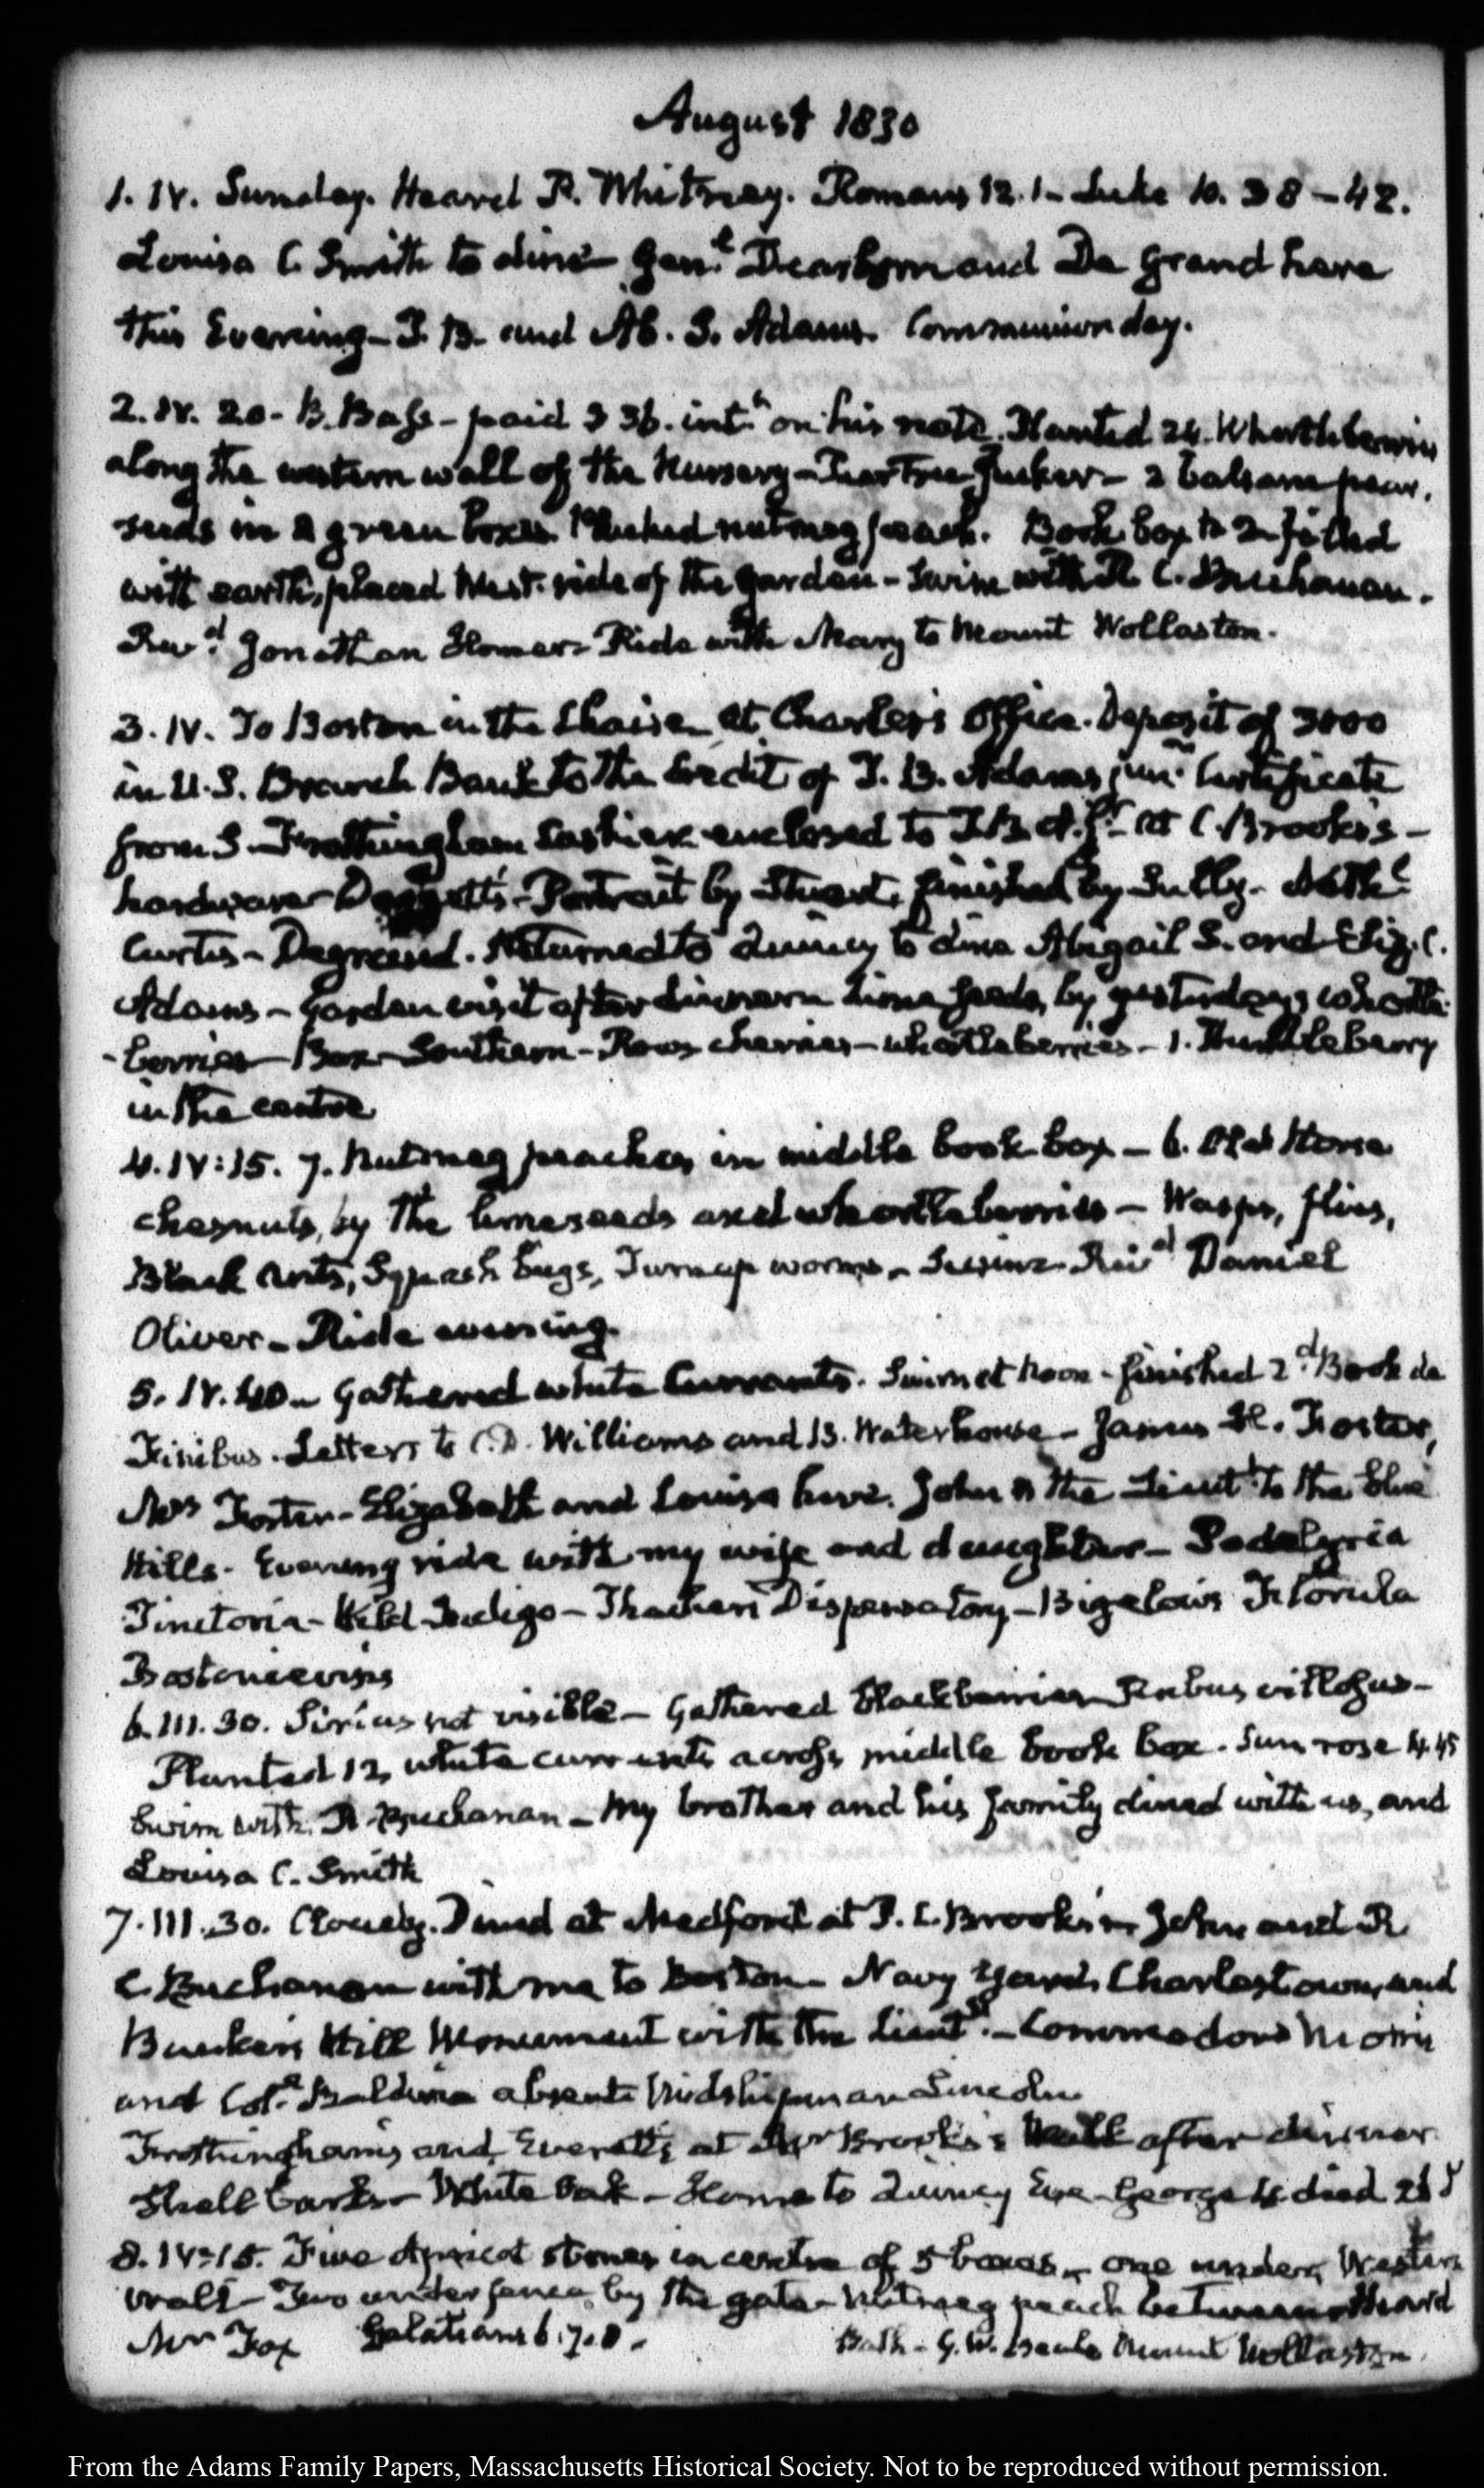 August 1830
1. IV. Sunday. Heard P. Whitney. Romans 12. 1 - Luke 10. 38 - 42.
Louisa C. Smith to dine - Genl. Dearborn and De Grand here
this Evening - T. B. and Ab. S. Adams. Communion day.
2. IV. 20 - B. Bass - paid 3 36. int. on his note. Planted 24. Whortleberries
along the western wall of the Nursery - 2 balsam pear,
seeds in 2 green boxes. Plucked nutmeg peach. Book box No 2 filled
with earth, placed West. side of the garden - Swim with R. C. Buchanan.
Revd. Jonathan Homer - Ride with Mary to Mount Wollaston.
3. IV. To Boston in the Chaise at Charles's Office. Deposit of 3000
in U.S. Branch Bank to the Credit of T. B. Adams junr. Certificate
from S. Frothingham Cashier enclosed to T B A. jr. at C. Brooks's -
hardware Doggett's - Portrait by Stuart, finished by Sully - Nathl.
Curtis - Degrand. Returned to Quincy to dine Abigail S. and Eliz. C.
Adams - Garden visit after dinner lime seeds, by yesterday's whortle-
-berries - Box Southern - Row cherries - whortleberries - 1. Thimbleberry
in the centre
4. IV: 15. 7. Nutmeg peaches in middle book box - 6. Old Horse
chesnuts, by the limeseeds and whortleberries - Wasps, flies,
Black Ants, Squash bugs, Turnip worms - Swim - Revd Daniel
Oliver - Ride evening.
5. IV. 40 - Gathered white Currants. Swim at Noon - finished 2d. Book de
Finibus. Letters to C. D. Williams and B. Waterhouse - James H. Foster,
Mrs Foster - Elizabeth and Louisa here. John & the Lieutt. to the blue
Hills - Evening ride with my wife and daughter - Podalyria
Tinctoria - Wild Indigo - Thacher's Dispensatory - Bigelow's Florula
Bostoniensis
6. III. 30. Sirius not visible - Gathered blackberries Rubus villosus -
Planted 12, white currants across middle book box. Sun rose 4.45
Swim with R. Buchanan - My brother and his family dined with us, and
Louisa C. Smith
7. III. 30. Cloudy. Dined at Medford at P. C. Brooks's - John and R
C. Buchanan with me to Boston - Navy Yard, Charlestown, and
Bunker's Hill Monument with the Lieutt. - Commodore Morris
and Coll. Baldwin absent. Midshipman Lincoln
Frothinghams and Everetts at Mr Brooks's Walk after dinner
Shell barks - White Oak - Home to Quincy Eve - George 4. died 26 J
8. IV: 15. Five Apricot stones in centre of 5 boxes - one under Western
wall - Two under fence by the gate - Nutmeg peach between - Heard
Mr Fox Galatians 6. 7. 8. Bath - G. W. Beale Mount Wollaston.
From the Adams Family Papers, Massachusetts Historical Society. Not to be reproduced without permission.